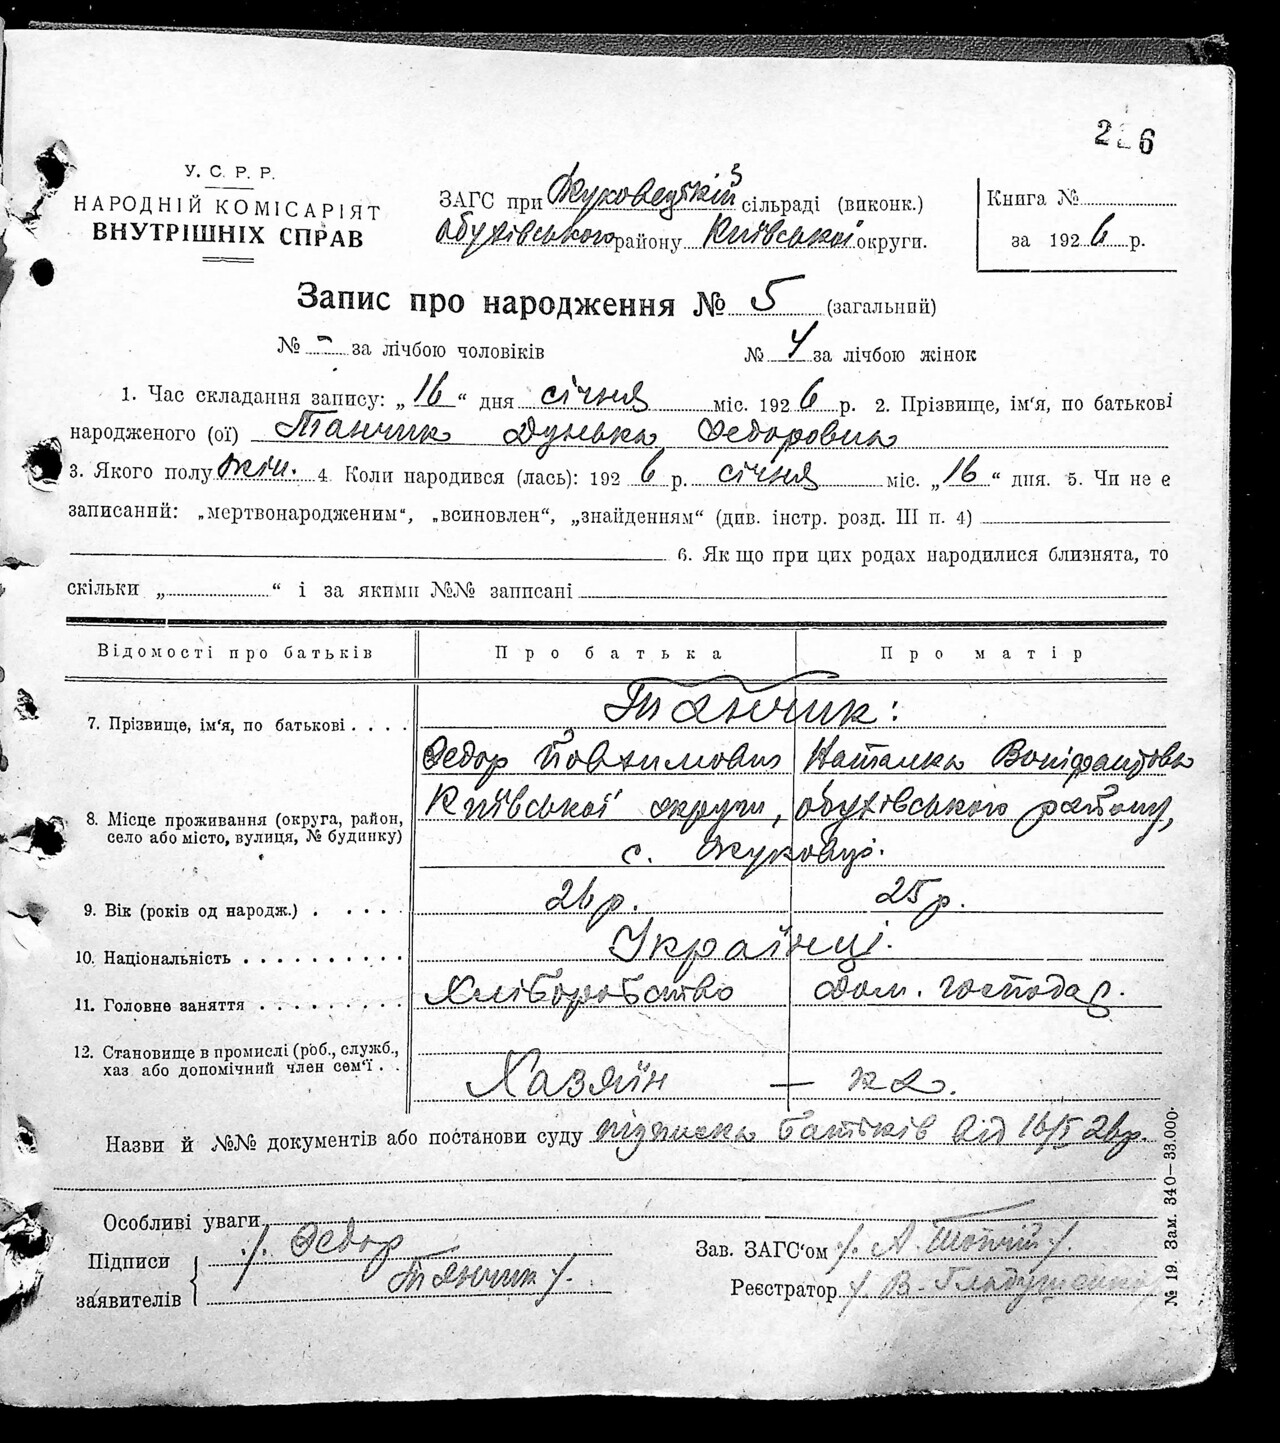 226
У. С. Р. Р.
НАРОДНІЙ КОМІСАРІЯТ
ВНУТРІШНІХ СПРАВ
ЗАГС при Жуковецькій сільраді (виконк.)
Обухівського району Київської округи.
Книга №
за 1926 р.
Запис про народження № 5 (загальний)
№ - за лічбою чоловіків № 4 за лічбою жінок
1. Час складання запису: „16“ дня січня міс. 1926 р. 2. Прізвище, ім'я, по батькові
народженого (ої) Танчик Дунька Федоровна
3. Якого полу жін. 4. Коли народився (лась): 1926 р. січня міс. „16“ дня. 5. Чи не є
записаний: „мертвонародженим“, „всиновлен“, „знайденням“ (див. інстр. розд. III п. 4)
6. Як що при цих родах народилися близнята, то
скільки „ “ і за якими №№ записані
Відомості про батьків Про батька Про матір
7. Прізвище, ім'я, по батькові . . . . Танчик:
Федор Йовхимович Наталка Воніфантовна
8. Місце проживання (округа, район, село або місто, вулиця, № будинку) Київської округи, обухівського району,
с. Жуковці.
9. Вік (років од народж.) . . . . . 26 р. 25 р.
10. Національність . . . . . . . . . . Українці.
11. Головне заняття . . . . . . . . . Хліборобство Дом. господар.
12. Становище в промислі (роб., служб.,
хаз або допомічний член сем'ї . . Хазяїн — ка.
Назви й №№ документів або постанови суду підписка батьків від 16/I 26р.
Особливі уваги
Підписи
заявителів
/. Федор
Танчик /.
Зав. ЗАГС'ом /. А. /.
Реєстратор /. В.
№ 19. Зам. 340—33.000.